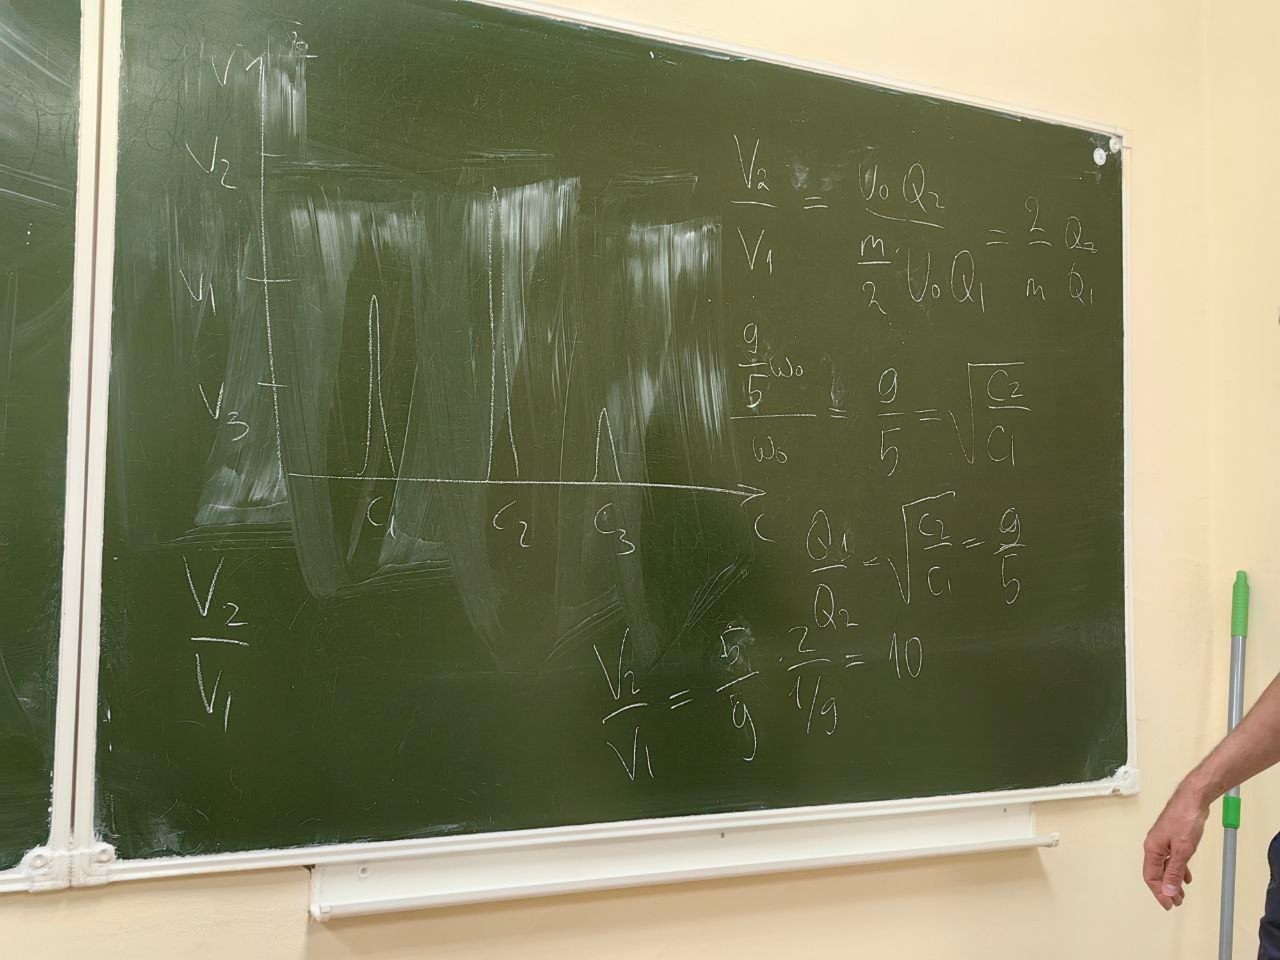 V
V₂
V₁
V₃
C₁ C₂ C₃ C
V₂/V₁
V₂/V₁ = U₀Q₂/(m/2 · U₀Q₁) = 2/m Q₂/Q₁
(9/5 ω₀)/ω₀ = 9/5 = √(C₂/C₁)
Q₁/Q₂ = √(C₂/C₁) = 9/5
V₂/V₁ = 5/9 · 2/(1/9) = 10